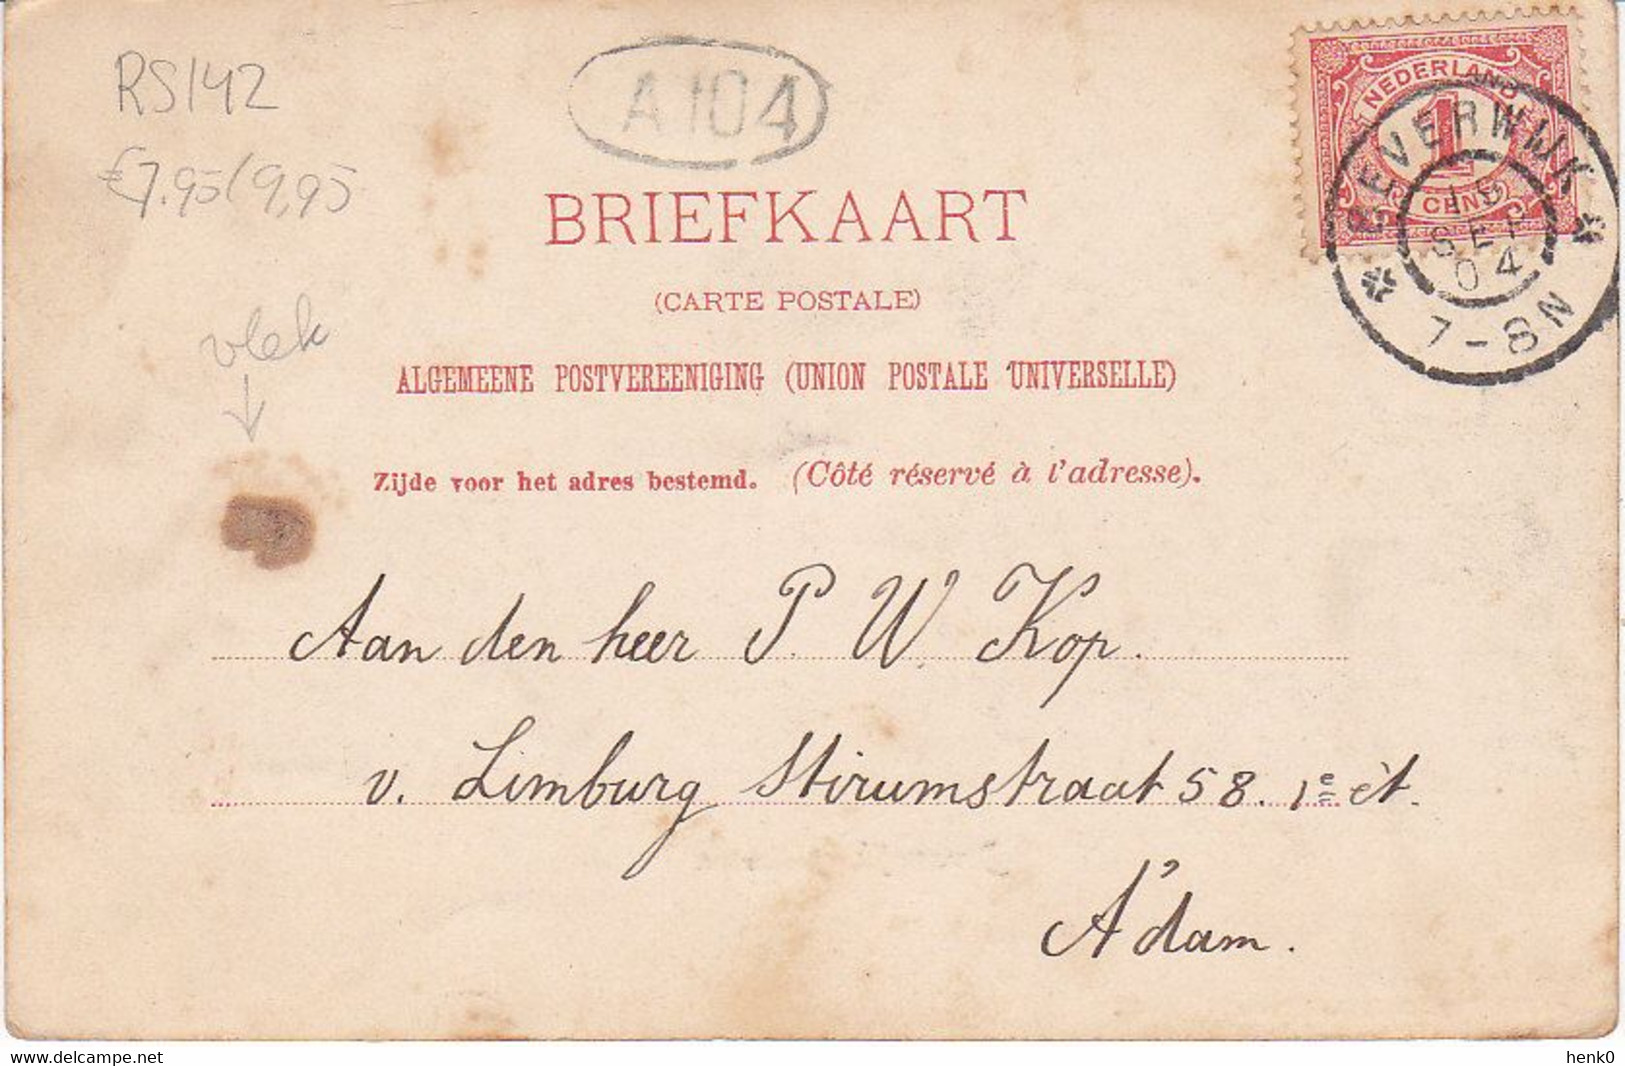 RS142
€7.95/9,95
A104
NEDERLAND
1
CENT
BEVERWIJK
SEP
04
7-8N
BRIEFKAART
(CARTE POSTALE)
vlek
ALGEMEENE POSTVEREENIGING (UNION POSTALE UNIVERSELLE)
Zijde voor het adres bestemd. (Côté réservé à l'adresse).
Aan den heer P. W. Kop.
v. Limburg Stirumstraat 58. 1e ét.
A'dam.
www.delcampe.net
henk0